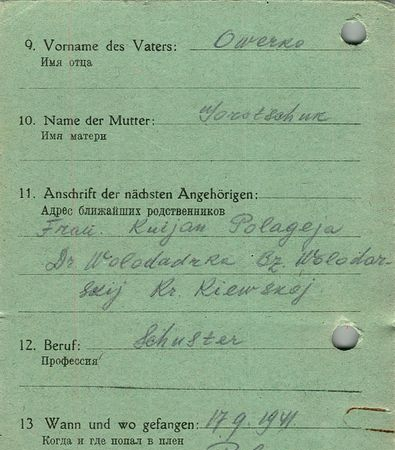 9. Vorname des Vaters: Owerko
Имя отца
10. Name der Mutter: Yorotschuk
Имя матери
11. Anschrift der nächsten Angehörigen:
Адрес ближайших родственников
Frau. Kuijan Polageja
Dr. Wolodadrka Bz. Wolodar-
skij Kr. Kiewskoj
12. Beruf: Schuster
Профессия
13 Wann und wo gefangen: 17.9.1941
Когда и где попал в плен